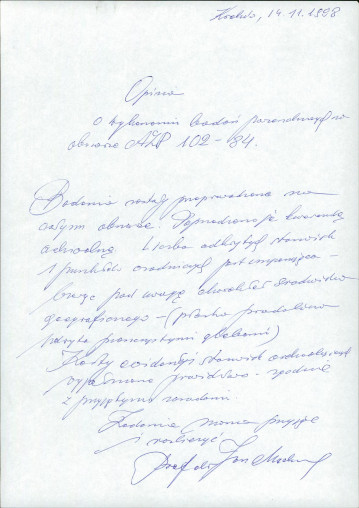 Kraków, 14.11.1998
Opinia
o wykonaniu badań powierzchniowych na
obszarze AZP 102-84.
Badania zostały przeprowadzone na
całym obszarze. Poprzedzono je kwerendą
archiwalną. Liczba odkrytych stanowisk
i punktów osadniczych jest imponująca -
biorąc pod uwagę charakter środowiska
geograficznego - (
pokryta piaszczystymi glebami)
Karty ewidencji stanowisk archeologicznych
wypełniono prawidłowo - zgodnie
z przyjętymi zasadami.
Zadanie można przyjąć
i rozliczyć
Prof. dr Jan